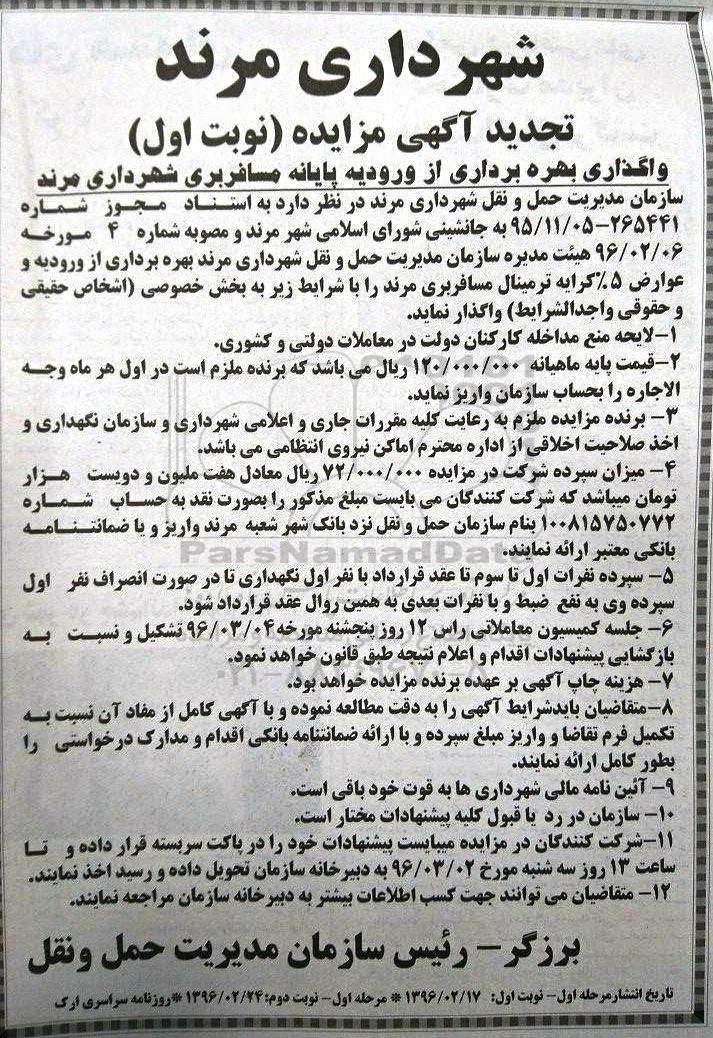 شهرداری مرند
تجدید آگهی مزایده (نوبت اول)
واگذاری بهره برداری از ورودیه پایانه مسافربری شهرداری مرند
سازمان مدیریت حمل و نقل شهرداری مرند در نظر دارد به استناد مجوز شماره
۲۶۵۴۴۱-۹۵/۱۱/۰۵ به جانشینی شورای اسلامی شهر مرند و مصوبه شماره ۴ مورخه
۹۶/۰۲/۰۶ هیئت مدیره سازمان مدیریت حمل و نقل شهرداری مرند بهره برداری از ورودیه و
عوارض ۵٪کرایه ترمینال مسافربری مرند را با شرایط زیر به بخش خصوصی (اشخاص حقیقی
و حقوقی واجدالشرایط) واگذار نماید.
۱-لایحه منع مداخله کارکنان دولت در معاملات دولتی و کشوری.
۲-قیمت پایه ماهیانه ۱۲۰/۰۰۰/۰۰۰ ریال می باشد که برنده ملزم است در اول هر ماه وجه
الاجاره را بحساب سازمان واریز نماید.
۳- برنده مزایده ملزم به رعایت کلیه مقررات جاری و اعلامی شهرداری و سازمان نگهداری و
اخذ صلاحیت اخلاقی از اداره محترم اماکن نیروی انتظامی می باشد.
۴- میزان سپرده شرکت در مزایده ۷۲/۰۰۰/۰۰۰ ریال معادل هفت ملیون و دویست هزار
تومان میباشد که شرکت کنندگان می بایست مبلغ مذکور را بصورت نقد به حساب شماره
۱۰۰۸۱۵۷۵۰۷۷۲ بنام سازمان حمل و نقل نزد بانک شهر شعبه مرند واریز و یا ضمانتنامه
بانکی معتبر ارائه نمایند.
۵- سپرده نفرات اول تا سوم تا عقد قرارداد با نفر اول نگهداری تا در صورت انصراف نفر اول
سپرده وی به نفع ضبط و با نفرات بعدی به همین روال عقد قرارداد شود.
۶- جلسه کمیسیون معاملاتی راس ۱۲ روز پنجشنه مورخه ۹۶/۰۳/۰۴ تشکیل و نسبت به
بازگشایی پیشنهادات اقدام و اعلام نتیجه طبق قانون خواهد نمود.
۷- هزینه چاپ آگهی بر عهده برنده مزایده خواهد بود.
۸-متقاضیان بایدشرایط آگهی را به دقت مطالعه نموده و با آگهی کامل از مفاد آن نسبت به
تکمیل فرم تقاضا و واریز مبلغ سپرده و با ارائه ضمانتنامه بانکی اقدام و مدارک درخواستی را
بطور کامل ارائه نمایند.
۹- آئین نامه مالی شهرداری ها به قوت خود باقی است.
۱۰- سازمان در رد یا قبول کلیه پیشنهادات مختار است.
۱۱-شرکت کنندگان در مزایده میبایست پیشنهادات خود را در پاکت سربسته قرار داده و تا
ساعت ۱۳ روز سه شنبه مورخ ۹۶/۰۳/۰۲ به دبیرخانه سازمان تحویل داده و رسید اخذ نمایند.
۱۲- متقاضیان می توانند جهت کسب اطلاعات بیشتر به دبیرخانه سازمان مراجعه نمایند.
برزگر- رئیس سازمان مدیریت حمل ونقل
تاریخ انتشارمرحله اول- نوبت اول: ۱۳۹۶/۰۲/۱۷ * مرحله اول- نوبت دوم:۱۳۹۶/۰۲/۲۴ *روزنامه سراسری ارک
ParsNamadData